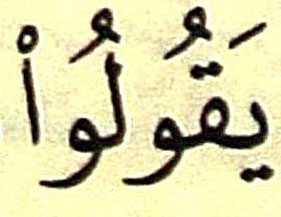 يَقُولُواْ